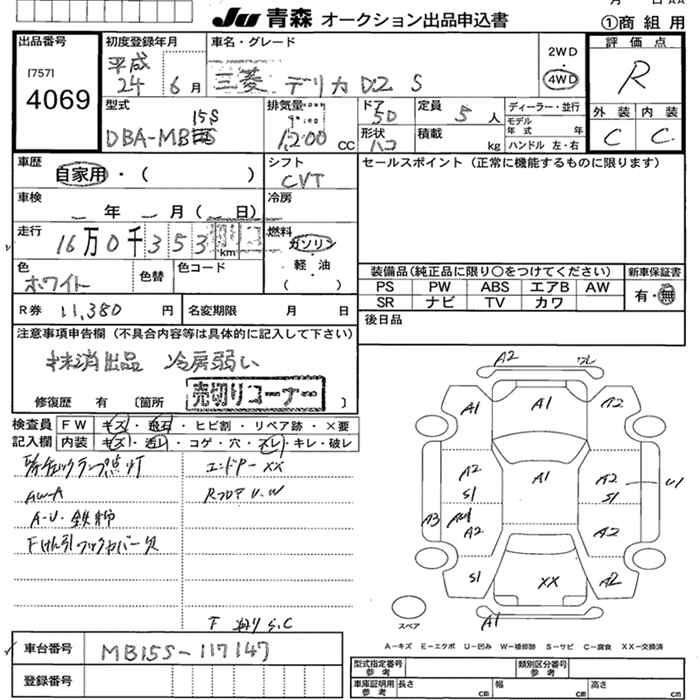 JU 青森 オークション出品申込書
①商組用
出品番号
[757]
4069
初度登録年月
平成
24年 6月
車名・グレード
三菱 デリカ D:2 S
2WD
4WD
評価点
R
外装 内装
C C
型式
DBA-MB15S
排気量
1200 cc
ドア
5D
形状
ハコ
定員 5人
積載 kg
ディーラー・並行
モデル年式 年
ハンドル 左・右
車歴
自家用・( )
シフト
CVT
セールスポイント(正常に機能するものに限ります)
車検
年 月( 日)
冷房
走行
16万0千353 km
燃料
ガソリン
・
軽油
( )
色
ホワイト
色替
色コード
装備品(純正品に限り○をつけてください)
PS PW ABS エアB AW
SR ナビ TV カワ
新車保証書
有・無
R券 11,380円
名変期限 月 日
後日品
注意事項申告欄(不具合内容等は具体的に記入して下さい)
抹消出品 冷房弱い
売切りコーナー
修復歴 有 〔箇所 〕
検査員記入欄
FW キズ・飛石・ヒビ割・リペア跡・×要
内装 キズ・汚レ・コゲ・穴・スレ・キレ・破レ
ランプ点灯
エンドアーXX
AW-A
RフロアU.W
A-U・鉄柿
Fけん引フックカバー欠
F S.C
A2
A1 A1 A2
A2 S1 A1 A2 S1 U1
A3 A2 A2
S1 XX A2
A1
スペア
A=キズ E=エクボ U=凹み W=補修跡 S=サビ C=腐食 XX=交換済
車台番号 MB15S-117147
登録番号
型式指定番号 参考
類別区分番号 参考
車庫証明用 参考
長さ cm 幅 cm 高さ cm